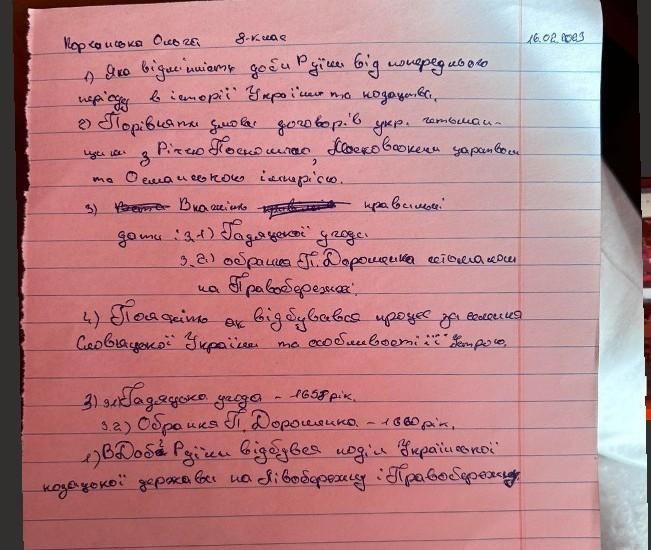 Ольга 8-клас 16.02.2023
1) Яка відмінність доби Руїни від попереднього
періоду в історії України та козацтва.
2) Порівняти умови договорів укр. гетьман-
щини з Річчю Посполитою, Московським царством
та Османською імперією.
3) Вкажіть правильні
дати: 3.1) Гадяцької угоди
3.2.) обрання П. Дорошенка гетьманом
на Правобережжі.
4) Поясніть як відбувався процес заселення
Слобідської України та особливості її устрою.
3) 3.1) Гадяцька угода - 1658 рік.
3.2) Обрання П. Дорошенка - 1660 рік.
1) В Добі Руїни відбувся поділ Української
козацької держави на Лівобережну і Правобережну.